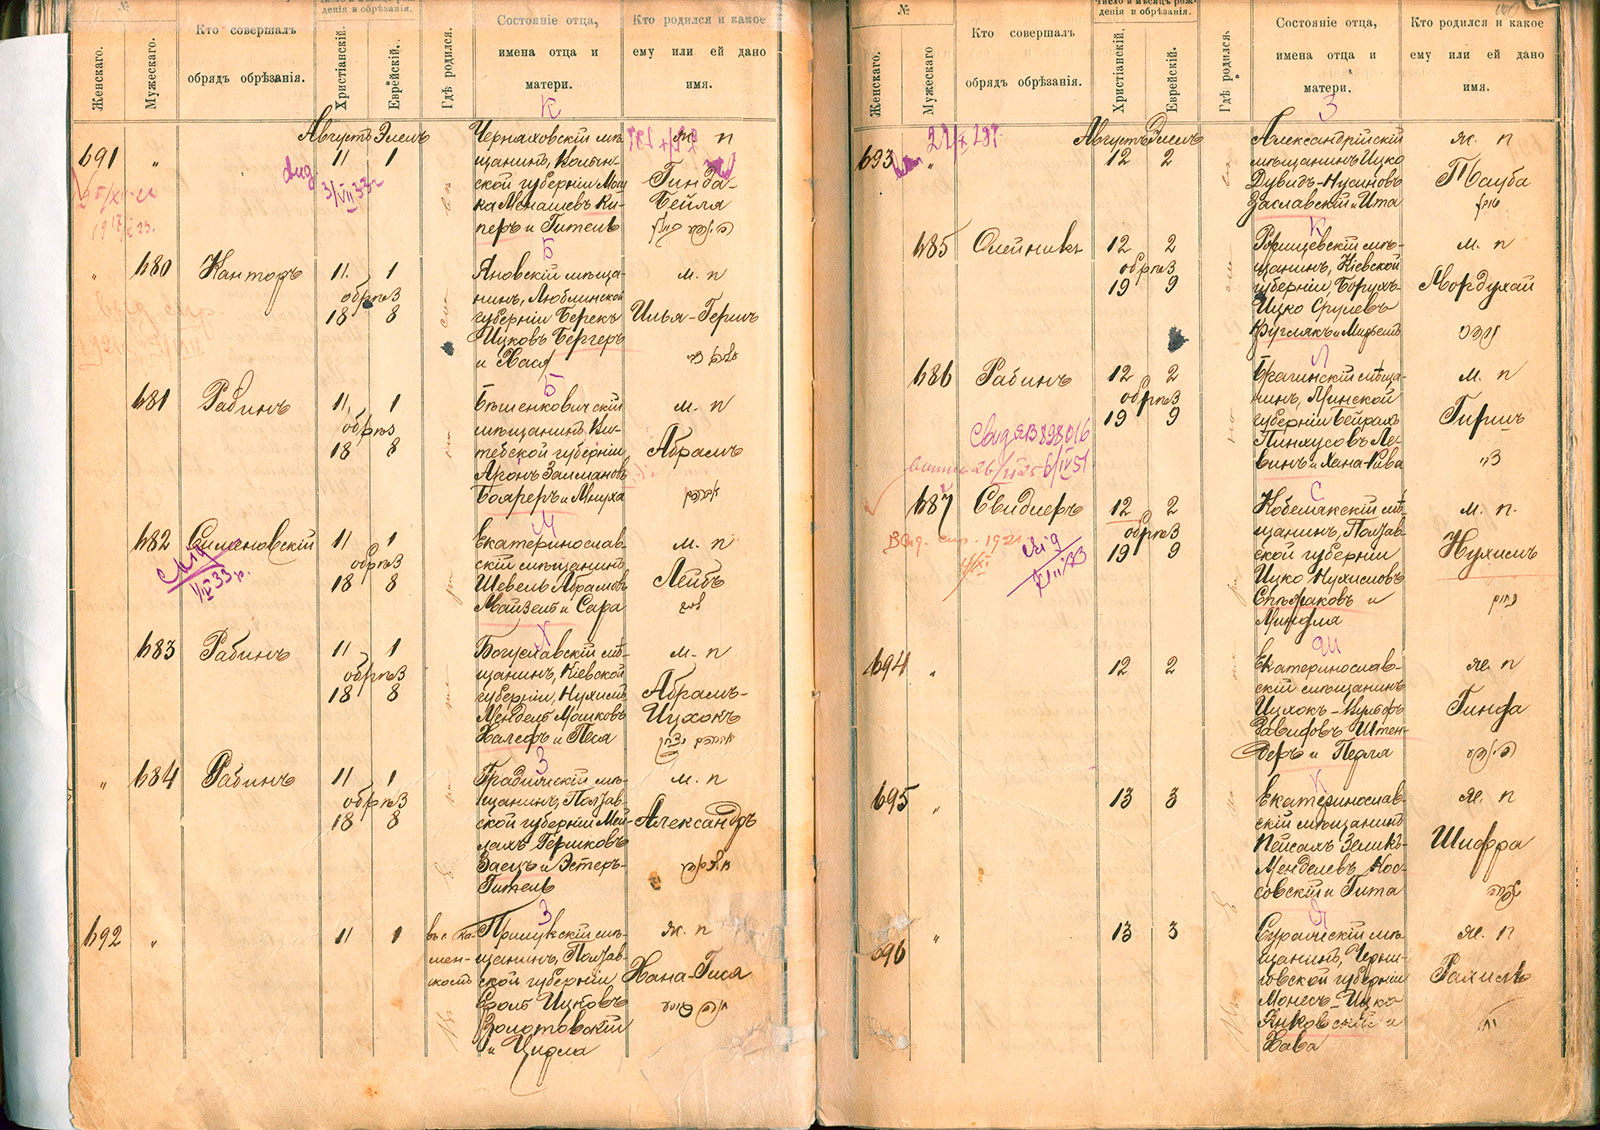 №
Женскаго.
Мужескаго.
Кто совершалъ
обрядъ обрѣзанія.
Христіанскій.
Еврейскій.
Гдѣ родился.
Состояніе отца,
имена отца и
матери.
Кто родился и какое
ему или ей дано
имя.
К
Августъ Элелъ
691 " 11 1
Черняховскій мѣ-
щанинъ, Волын-
ской губерніи Мош
ка Менашевъ Ки-
перъ и Гитель
ж. п
Гинда-
Бейля
Б
" 680 Канторъ 11 1
обрѣз
18 8
Яновскій мѣща-
нинъ, Люблинской
губерніи Берекъ
Ицковъ Бергеръ
и Хася
м. п
Илья-Гершъ
Б
681 Рабинъ 11 1
обрѣз
18 8
Бѣшенковичскій
мѣщанинъ, Ви-
тебской губерніи
Аронъ Залмановъ
Бояреръ и Мнуха
м. п
Абрамъ
אברהם
М
682 Симановскій 11 1
обрѣз
18 8
Екатеринослав-
скій мѣщанинъ
Шевель Абрамовъ
Майзель и Сара
м. п
Лейбъ
лейб
Х
683 Рабинъ 11 1
обрѣз
18 8
Богуславскій мѣ-
щанинъ, Кіевской
губерніи, Нухимъ
Мендель Мошковъ
Халефъ и Песя
м. п
Абрамъ-
Ицхокъ
אברהם יצחק
З
" 684 Рабинъ 11 1
обрѣз
18 8
Градижскій мѣ-
щанинъ, Полтав-
ской губерніи Мей-
лахъ Гершковъ
Заецъ и Эстеръ-
Гитель
м. п
Александръ
З
692 " 11 1
въ г. Ка-
мен-
скомъ
Прилукскій мѣ-
щанинъ, Полтав-
ской губерніи
Сролъ Ицковъ
Золотовскій
и Ципла
ж. п
Хана-Гися
№
Женскаго.
Мужескаго
Кто совершалъ
обрядъ обрѣзанія.
Число и мѣсяцъ рож-
денія и обрѣзанія.
Христіанскій.
Еврейскій.
Гдѣ родился.
Состояніе отца,
имена отца и
матери.
Кто родился и какое
ему или ей дано
имя.
З
Августъ Элелъ
693 " 12 2
Александрійскій
мѣщанинъ Ицко
Дувидъ-Нусиновъ
Заславскій и Ита
ж. п
Тауба
К
685 Олейникъ 12 2
обрѣз
19 9
щанинъ, Кіевской
губерніи, Борухъ-
Ицко Срулевъ
м. п
Мордухай
מרדכי
Л
686 Рабинъ 12 2
обрѣз
19 9
Брагинскій мѣща-
нинъ, Минской
губерніи Бейрахъ
Пинхусовъ Ле-
винъ и Хана-Рива
м. п
Гиршъ
С
687 Свидлеръ 12 2
обрѣз
19 9
Кобелякскій мѣ-
щанинъ, Полтав-
ской губерніи
Ицко Нухимовъ
Спѣваковъ и
Миндля
м. п.
Нухимъ
נחום
Ш
694 " 12 2
Екатеринослав-
скій мѣщанинъ
Ицхокъ-Вульфъ
Давидовъ Штен-
деръ и Перля
ж. п
Гинда
К
695 " 13 3
Екатеринослав-
скій мѣщанинъ
Пейсахъ Зеликъ-
Менделевъ Кос-
совскій и Гита
ж. п
Шифра
שפרה
Я
696 " 13 3
Суражскій мѣ-
щанинъ, Черни-
говской губерніи
Монесъ-Ицка
Янковскій и
Хава
ж. п
Рахиль
רחל